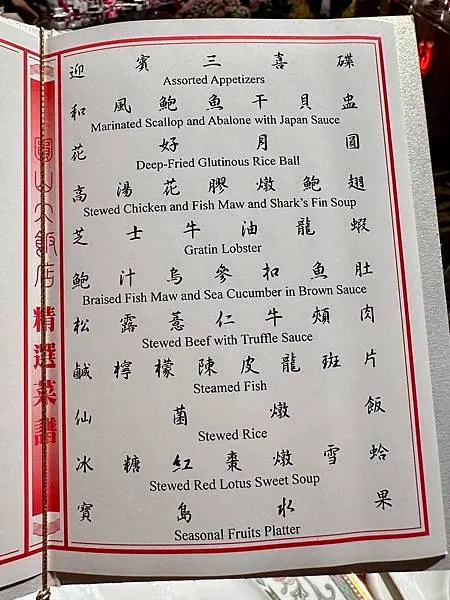 迎賓三喜碟
Assorted Appetizers
和風鮑魚干貝盅
Marinated Scallop and Abalone with Japan Sauce
花好月圓
Deep-Fried Glutinous Rice Ball
高湯花膠燉鮑翅
Stewed Chicken and Fish Maw and Shark's Fin Soup
芝士牛油龍蝦
Gratin Lobster
鮑汁烏參扣魚肚
Braised Fish Maw and Sea Cucumber in Brown Sauce
松露薏仁牛頰肉
Stewed Beef with Truffle Sauce
鹹檸檬陳皮龍斑片
Steamed Fish
仙菌燉飯
Stewed Rice
冰糖紅棗燉雪蛤
Stewed Red Lotus Sweet Soup
寶島水果
Seasonal Fruits Platter
圓山大飯店
精選菜譜